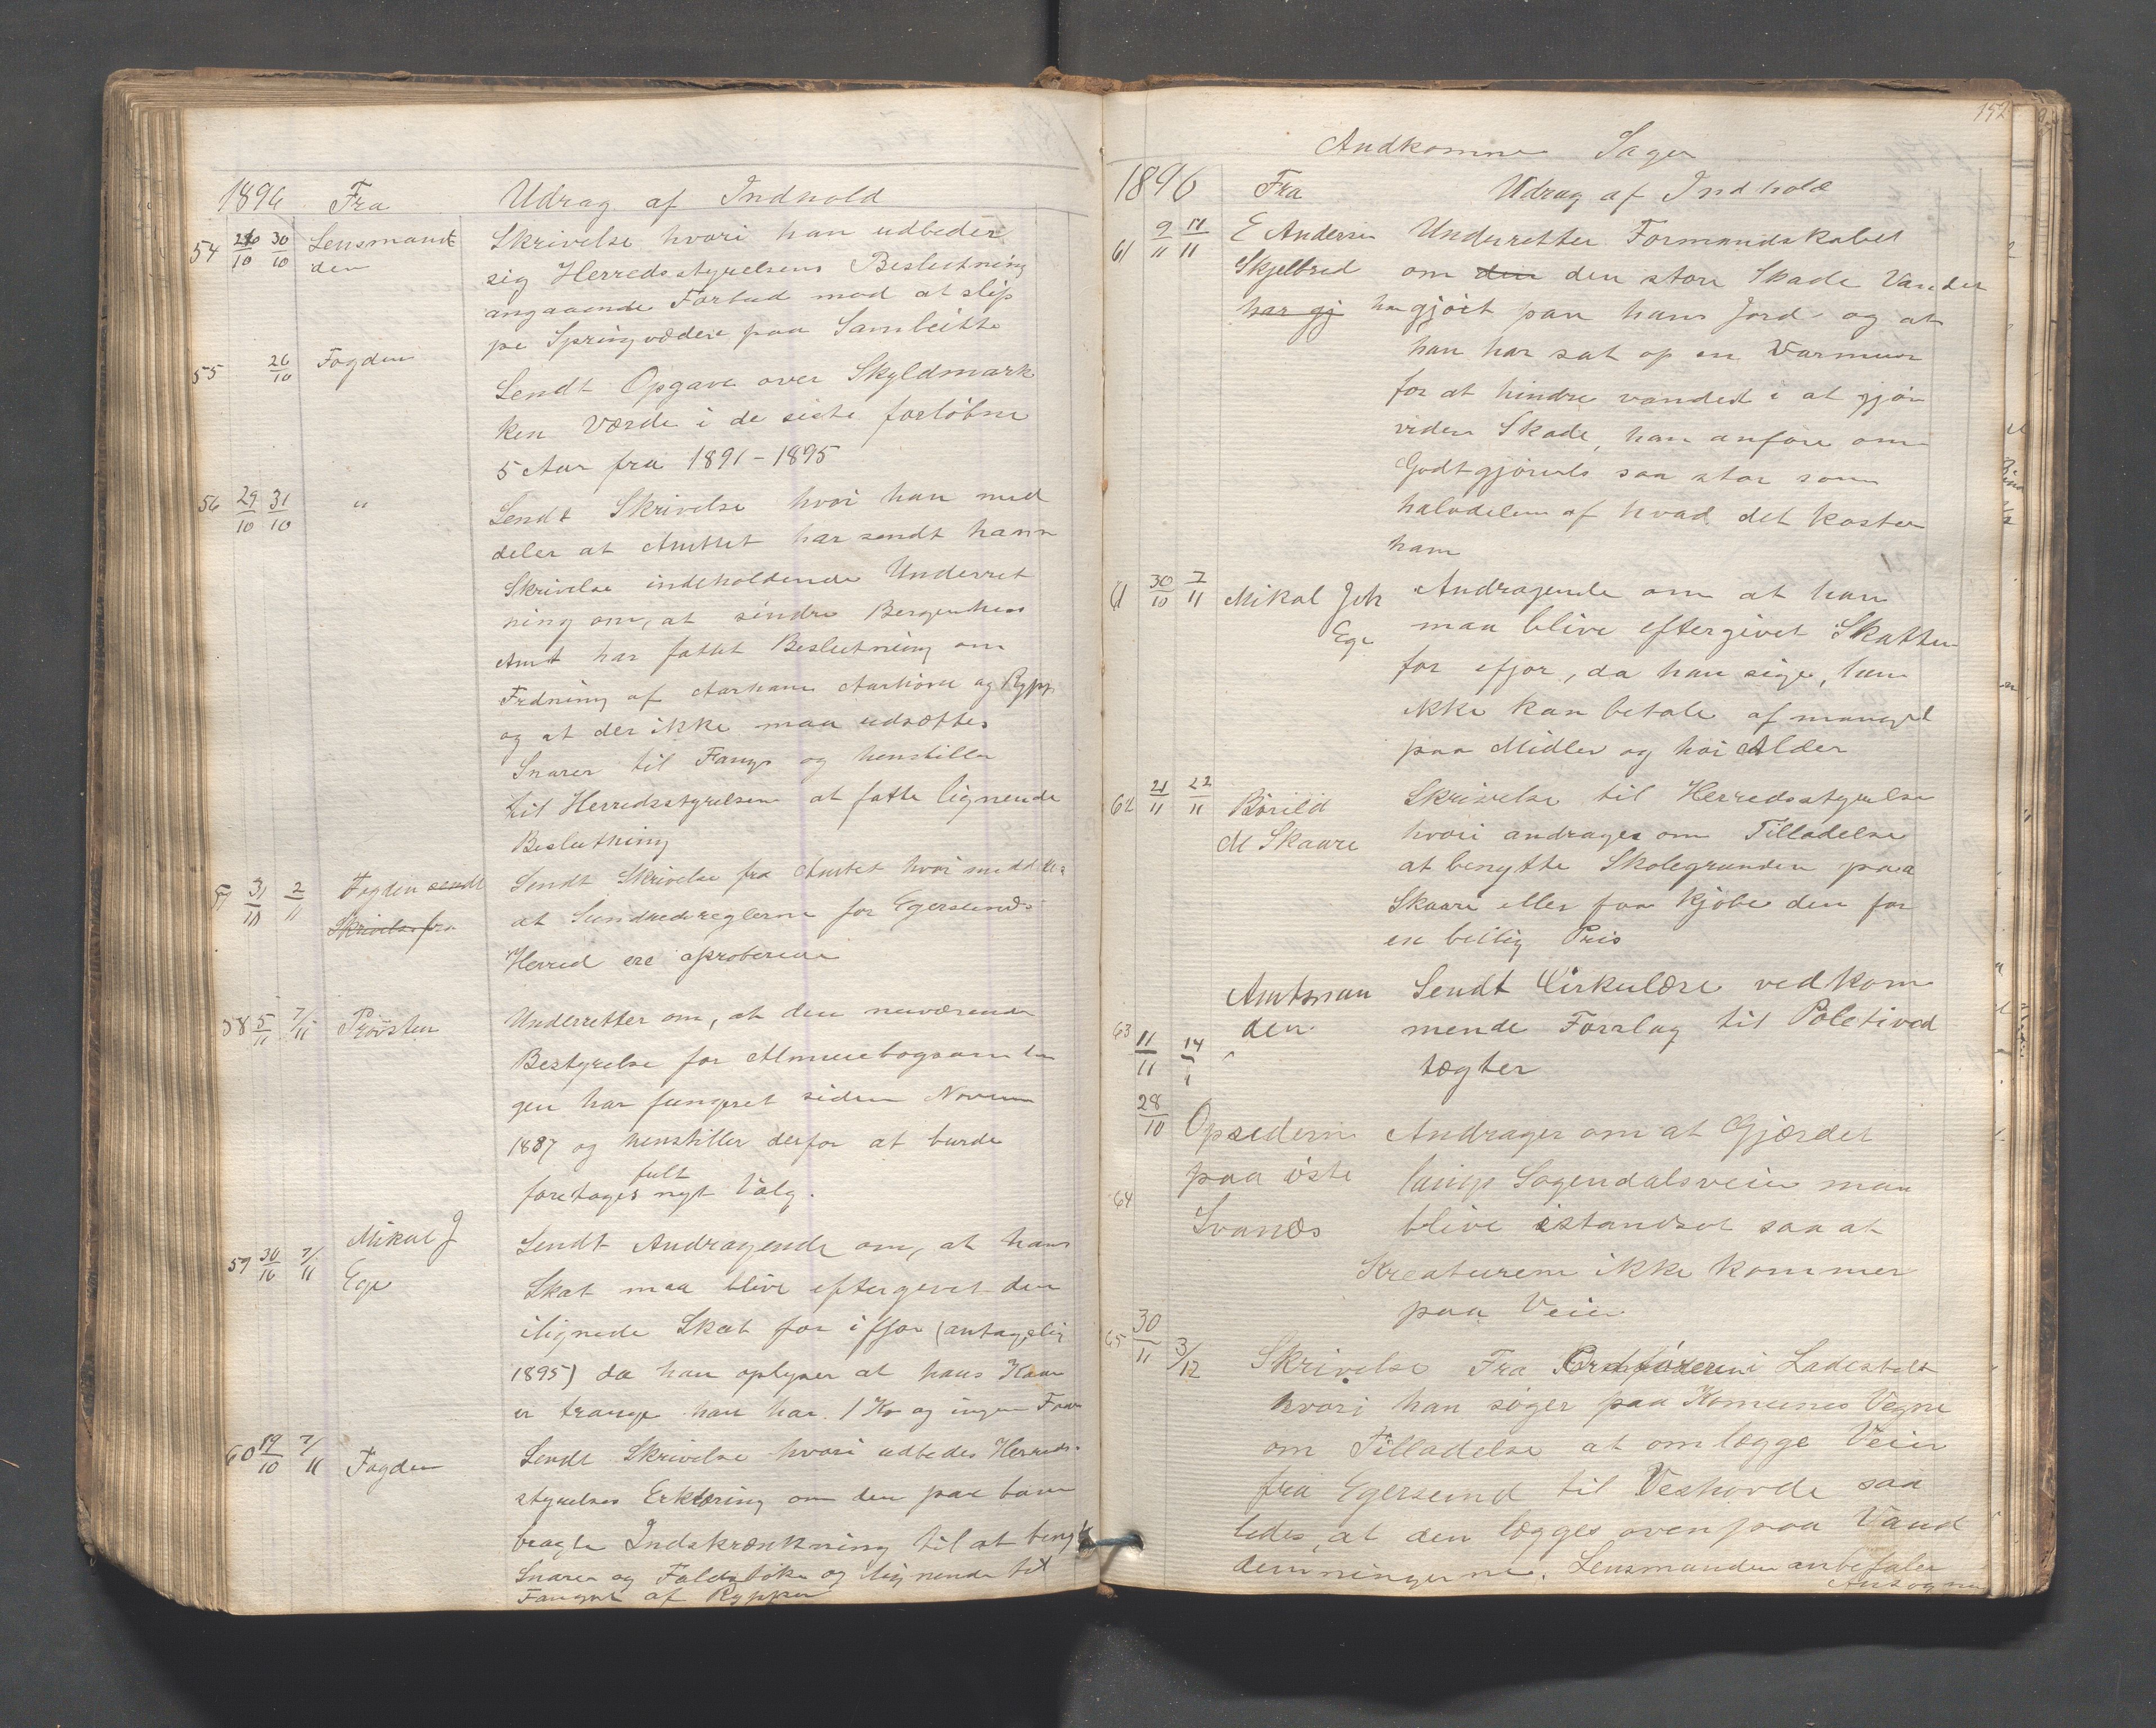 1896 Fra Udrag af Indhold
54 26/10 30/10 Lensmand Skrivelse hvori han udbeder
den sig Herredsstyrelsens Beslutning
angaaende Forbud mod at slip
pe Springvædere paa Sambeitte
55 26/10 Fogden Sendt Opgave over Skyldmark
ken Værde i de siste forløbne
5 Aar fra 1891-1895
56 29/10 31/10 " Sendt Skrivelse hvori han med
deler at Amttet har sendt ham
Skrivelse indeholdende Underret
ning om, at söndre Bergenhus
Amt har fattet Beslutning om
Fredning af Aarhane Aarhöne og Ryper
og at der ikke maa udsættes
Snarer til Fangs og henstiller
til Herredsstyrelsen at fatte lignende
Beslutning
57 31/10 2/11 Fogden sendt Sendt Skrivelse fra Amtet hvori meddeles
Skrivelse fra at Sundhedsreglerne for Egersunds
Herred ere aproberede
58 5/11 7/11 Prövsten Underretter om, at den nuværende
Bestyrelse for Almuebogsamlin
gen har fungeret siden Novem
1887 og henstiller derfor at burde
fult
foretages nyt Valg.
Mikal J Sendt Andragende om, at hans
59 30/10 7/11 Ege Skat maa blive eftergevet den
ilignede Skat for ifjor (antagelig
1895) da han oplyser at hans Kaar
er trange han har 1 Ko og ingen
60 19/10 7/11 Fogden Sendt Skrivelse hvori udbedes Herreds-
styrelses Erklæring om den paa bane
bragte Indskrænkning til at beng
Snarer og Faldstöke og lignende til
Fangst af Rypper
152
Andkomne Sager
1896 Fra Udrag af Indhold
61 9/11 11/11 E Andersen Underretter Formandskabet
Skjelbred om den den store Skade Vandet
har gj har gjört paa hans Jord og at
han har sat op en Varmuur
for at hindre vandet i at gjöre
videre Skade, han anföre om
Godtgjörels saa stor som
halvdelen af hvad det koster
ham
61 30/10 7/11 Mikal Joh Andragende om at han
Ege maa blive eftergivet Skatten
for ifjor, da han siger, han
ikke kan betale af mangel
paa Midler og höi Alder
62 21/11 22/11 Börild Skrivelse til Herredsstyrelse
M Skaare hvori andrages om Tilladelse
at benytte Skolegrunden paa
Skaare eller faa kjöbe den for
en beilig Pris
Amtman Sendt Cirkulære vedkom
63 11/11 14/ den mende Forslag til Poletived
tægter
28/10 Opsedern Andrager om at Gjærdet
paa öste langs Sogendalsveien maa
64 Svanæs blive istandsat saa at
Kreaturene ikke kommer
paa Veien
65 30/11 3/12 Skrivelse Fra Ordföreren i Ladestedt
hvori han söger paa Komunes Vegne
om Tilladelse at omlægge Veien
fra Egersund til Veshovde saa
ledes, at den lægges oven paa Vand
demningerne. Lensmanden anbefaler
Ansögn